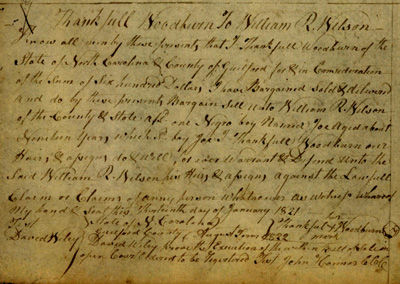 Thankfull Woodburn To William R. Nelson
Know all men by these presents that I Thankfull Woodburn of the
State of North Carolina & County of Guilford for & in Consideration
of the Sum of Six hundred Dollars I have Bargained Sold & delivered
and do by these presents Bargain Sell unto William R. Nelson
of the County & State afs one Negro boy Named Joe aged about
Nineteen Years which boy Joe I Thankfull Woodburn our
Heirs & assigns do & will for ever Warrant & Defend unto the
Said William R. Nelson his Heirs & assigns against the Lawfull
Claim or Claims of any person Whatsoever as Witness Whereof
My hand & Seal this Thirteenth day of January 1821
Test
David Wiley
State of N Carolina
Guilford County August Term 1822
Thankful X Woodburn
her
mark
David Wiley prove the Execution of the within Bill of Sale in
open Court Ordered to be Registered Test John Hanner C C C